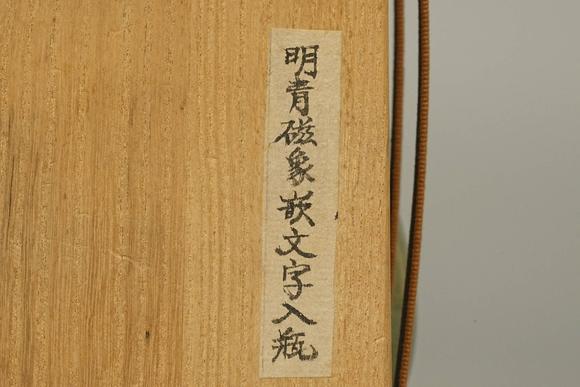 明青磁象嵌文字入瓶